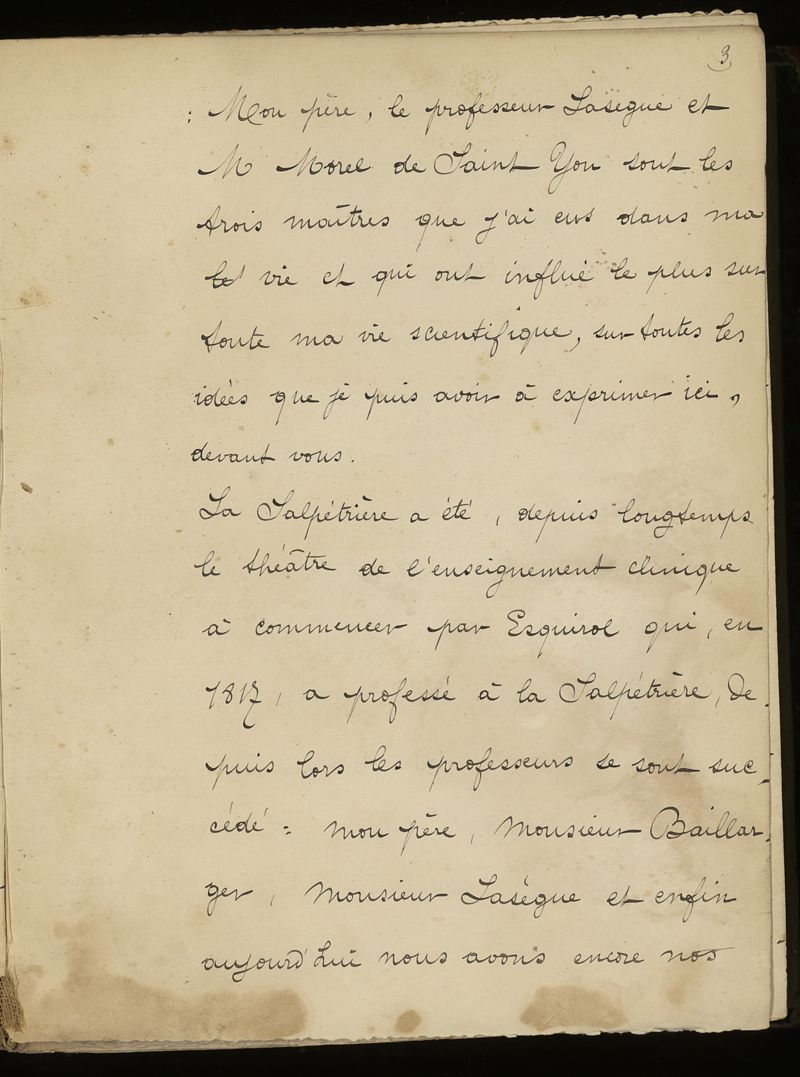 3
: Mon père, le professeur Lasègue et
M Morel de Saint Yon sont les
trois maîtres que j'ai eus dans ma
vie et qui ont influé le plus sur
toute ma vie scientifique, sur toutes les
idées que je puis avoir à exprimer ici,
devant vous.
La Salpétrière a été, depuis longtemps
le théâtre de l'enseignement clinique
à commencer par Esquirol qui, en
1817, a professé à la Salpétrière, De-
puis lors les professeurs se sont suc-
cédé : mon père, Monsieur Baillar-
ger, Monsieur Lasègue et enfin
aujourd'hui nous avons encore nos